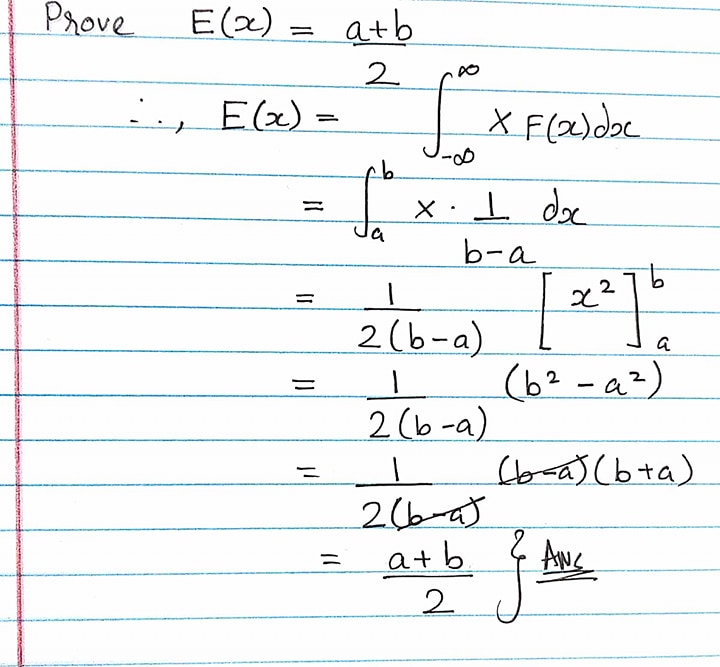 Prove E(x) = a+b/2
∴, E(x) = ∫_{-∞}^{∞} x F(x)dx
= ∫_a^b x · 1/(b-a) dx
= 1/2(b-a) [x²]_a^b
= 1/2(b-a) (b² - a²)
= 1/2(b-a) (b-a)(b+a)
= a+b/2 } Ans